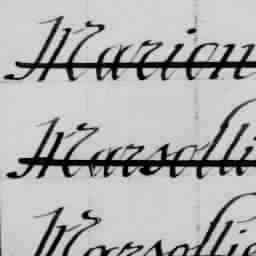 Marion
Marsolli
Marsollie